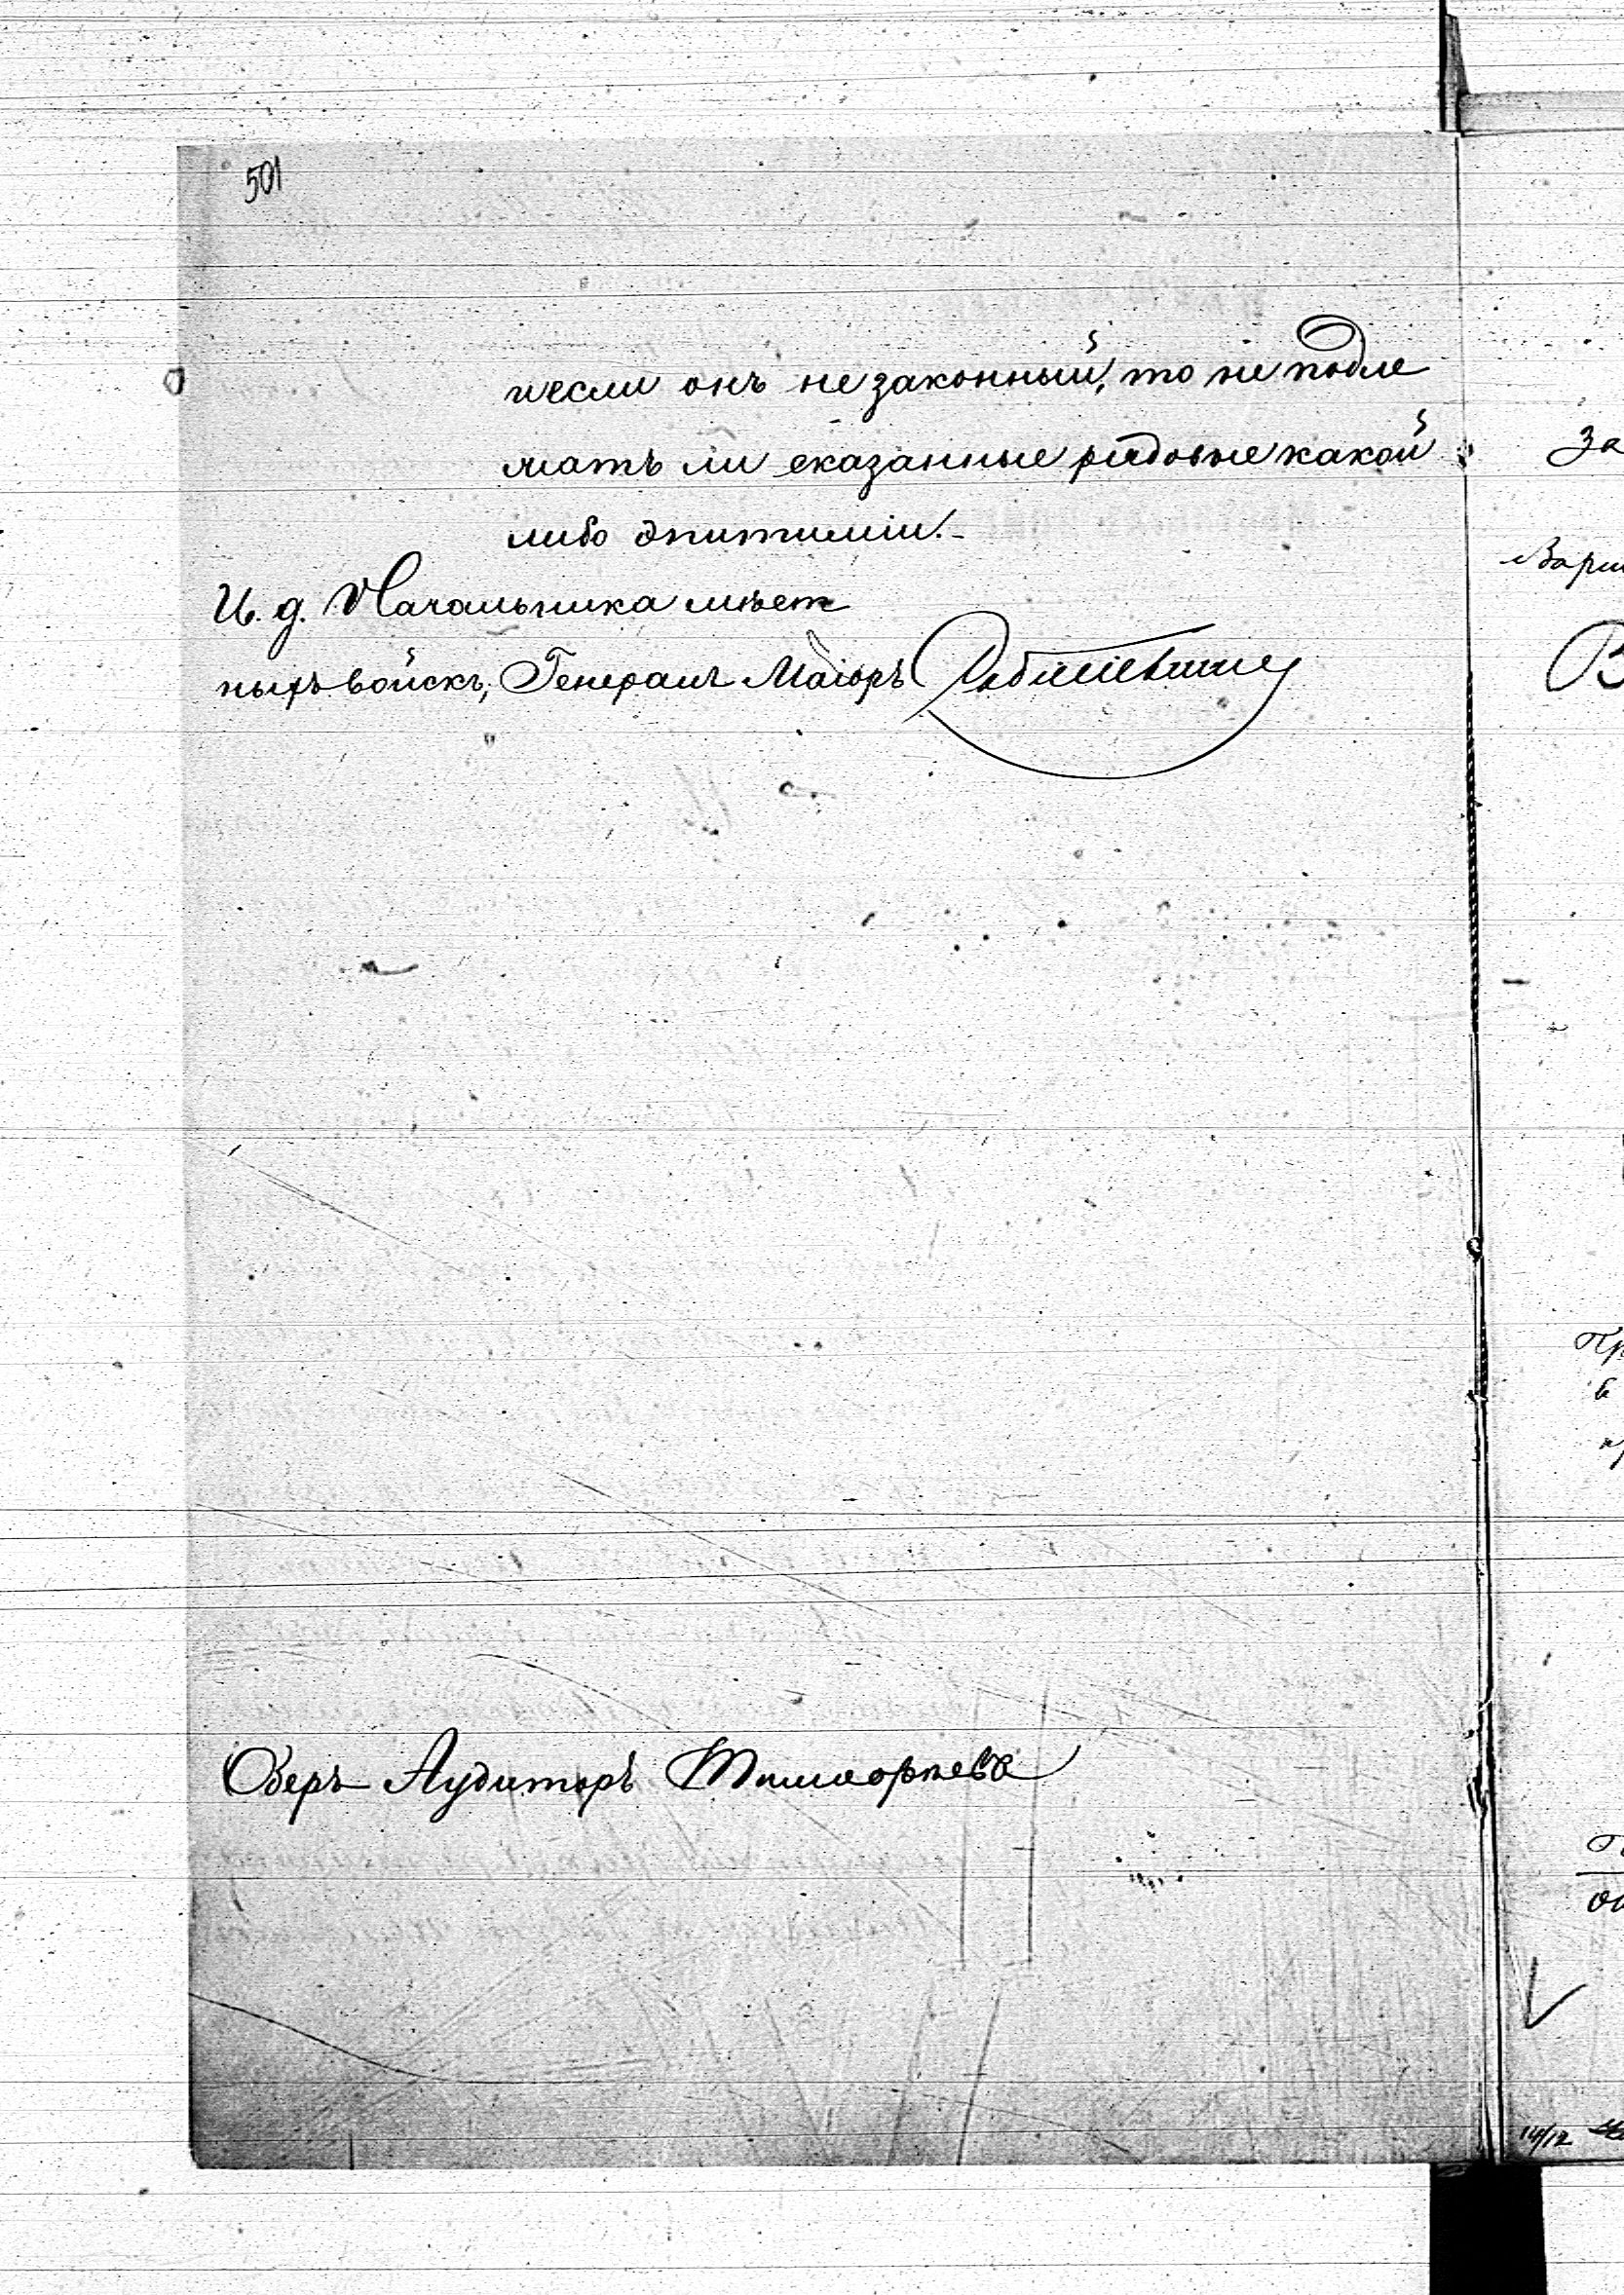 501
и если онъ не законный, то не подле
жатъ ли сказанные рядовые какой
либо эпитиміи. -
И. д. Начальника мѣст
ныхъ войскъ, Генералъ Маіоръ
Оберъ Аудиторъ
За
Варш
В
Пр
в
пр
14/12